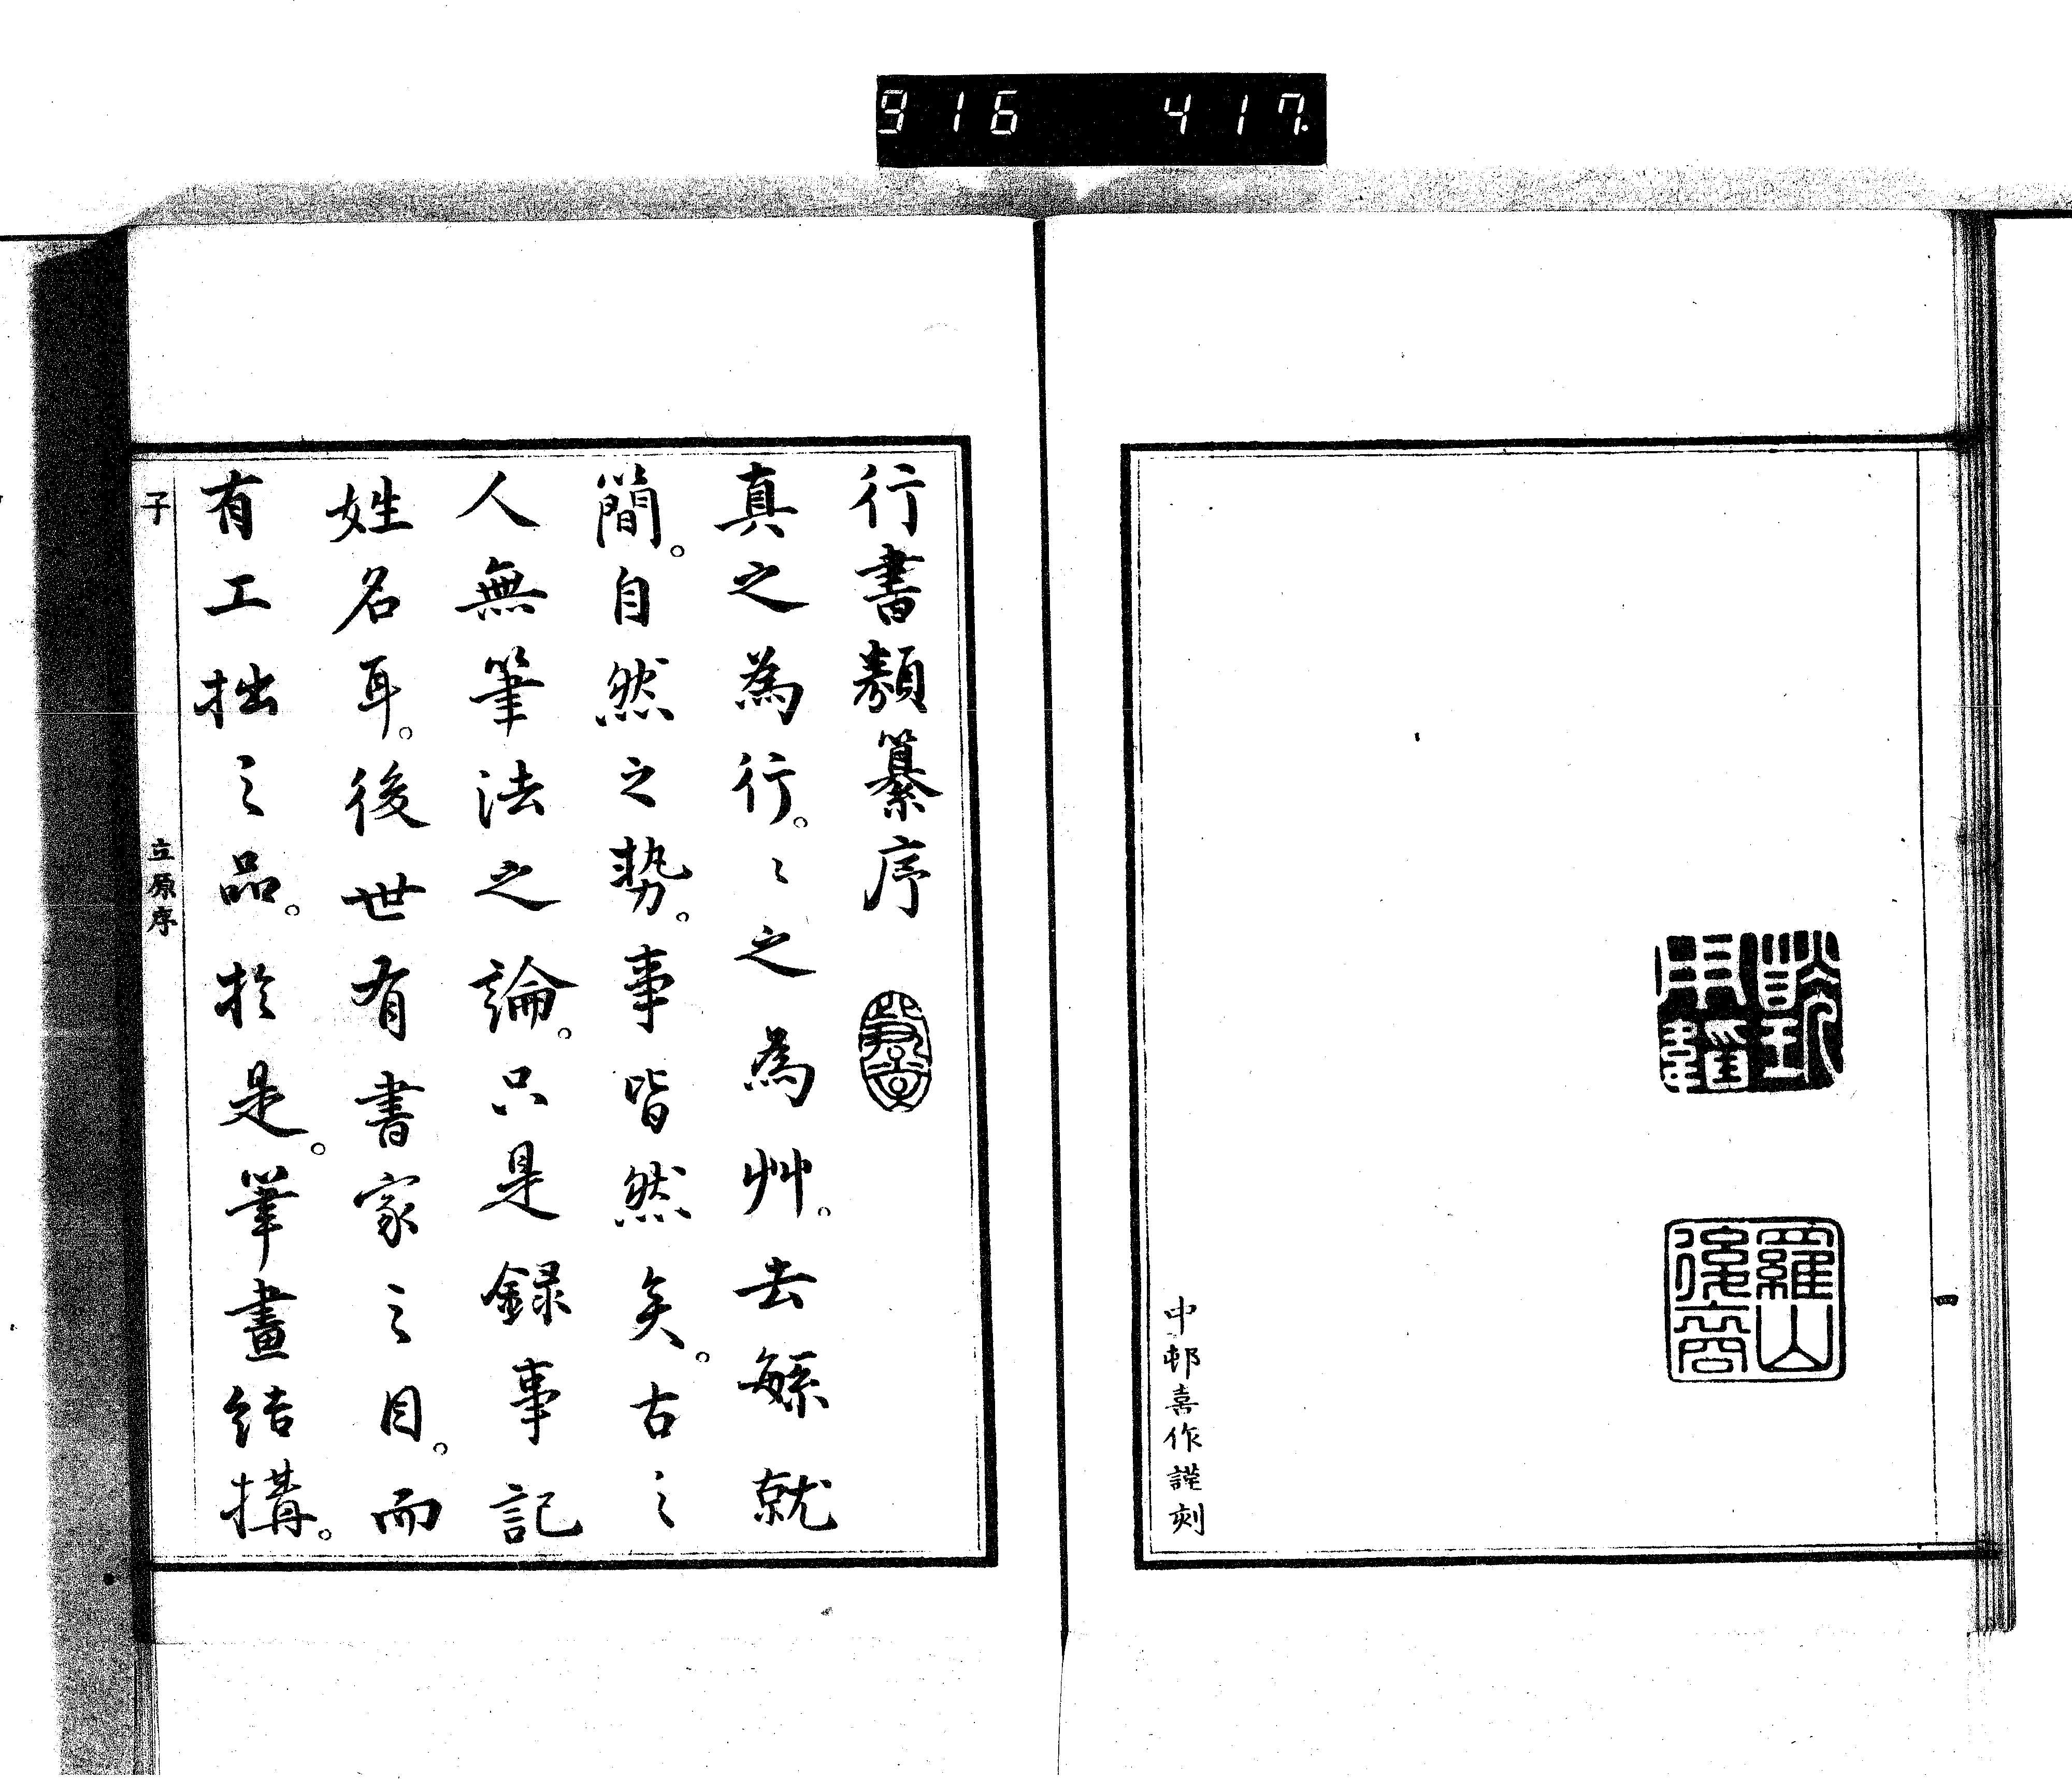 916 417
四
羅山
後裔
中邨喜作謹刻
行書類纂序
真之為行。〻之為艸。去緐就
簡。自然之勢。事皆然矣。古之
人無筆法之論。只是録事記
姓名耳。後世有書家之目。而
有工拙之品。於是。筆畫結搆。
子
立原序